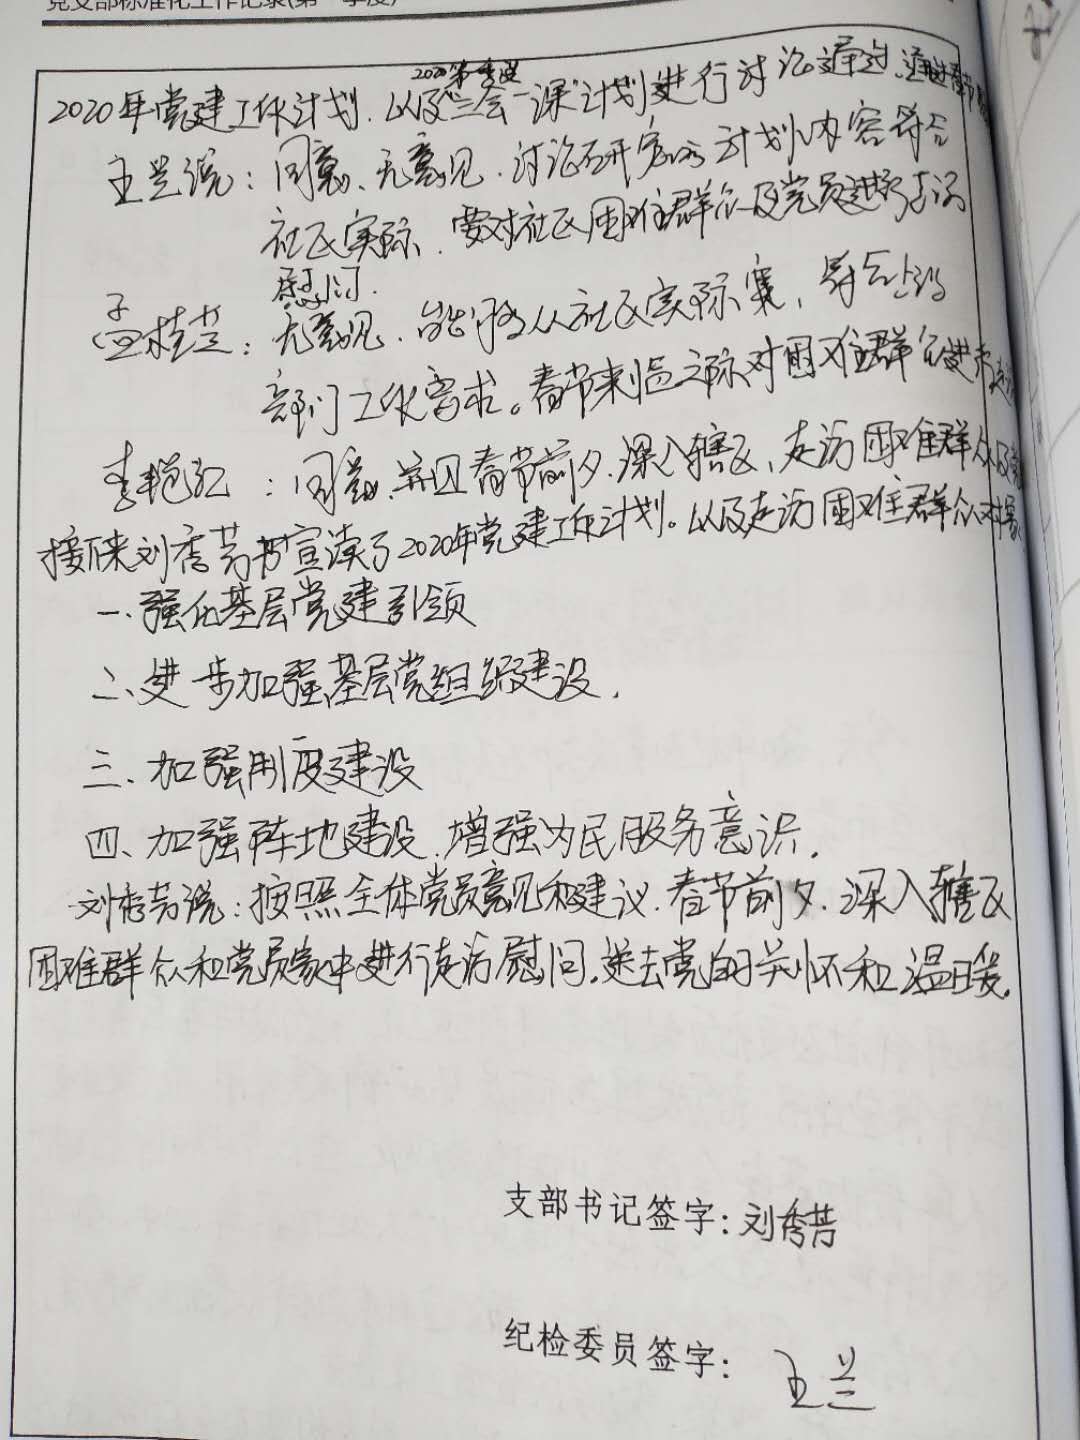 党支部标准化工作记录(第一季度)
2020第一季度
2020年党建工作计划.以及"三会一课"计划进行讨论通过.通过春节
王兰说:同意、无意见.讨论研究的计划内容符合
社区实际.要对社区困难群众及党员进行走访
慰问.
孟桂芝:无意见.能够从社区实际出,符合上级
部门工作要求。春节来临之际对困难群众进行走
李艳红:同意,并且春节前夕.深入辖区、走访困难群众及党
接下来刘秀芳书宣读了2020年党建工作计划。以及走访困难群众对
一、强化基层党建引领
二、进步加强基层党组织建设.
三、加强制度建设
四、加强阵地建设.增强为民服务意识.
刘秀芳说:按照全体党员意见和建议.春节前夕.深入辖区
困难群众和党员家中进行走访慰问.送去党的关怀和温暖.
支部书记签字:刘秀芳
纪检委员签字:王兰